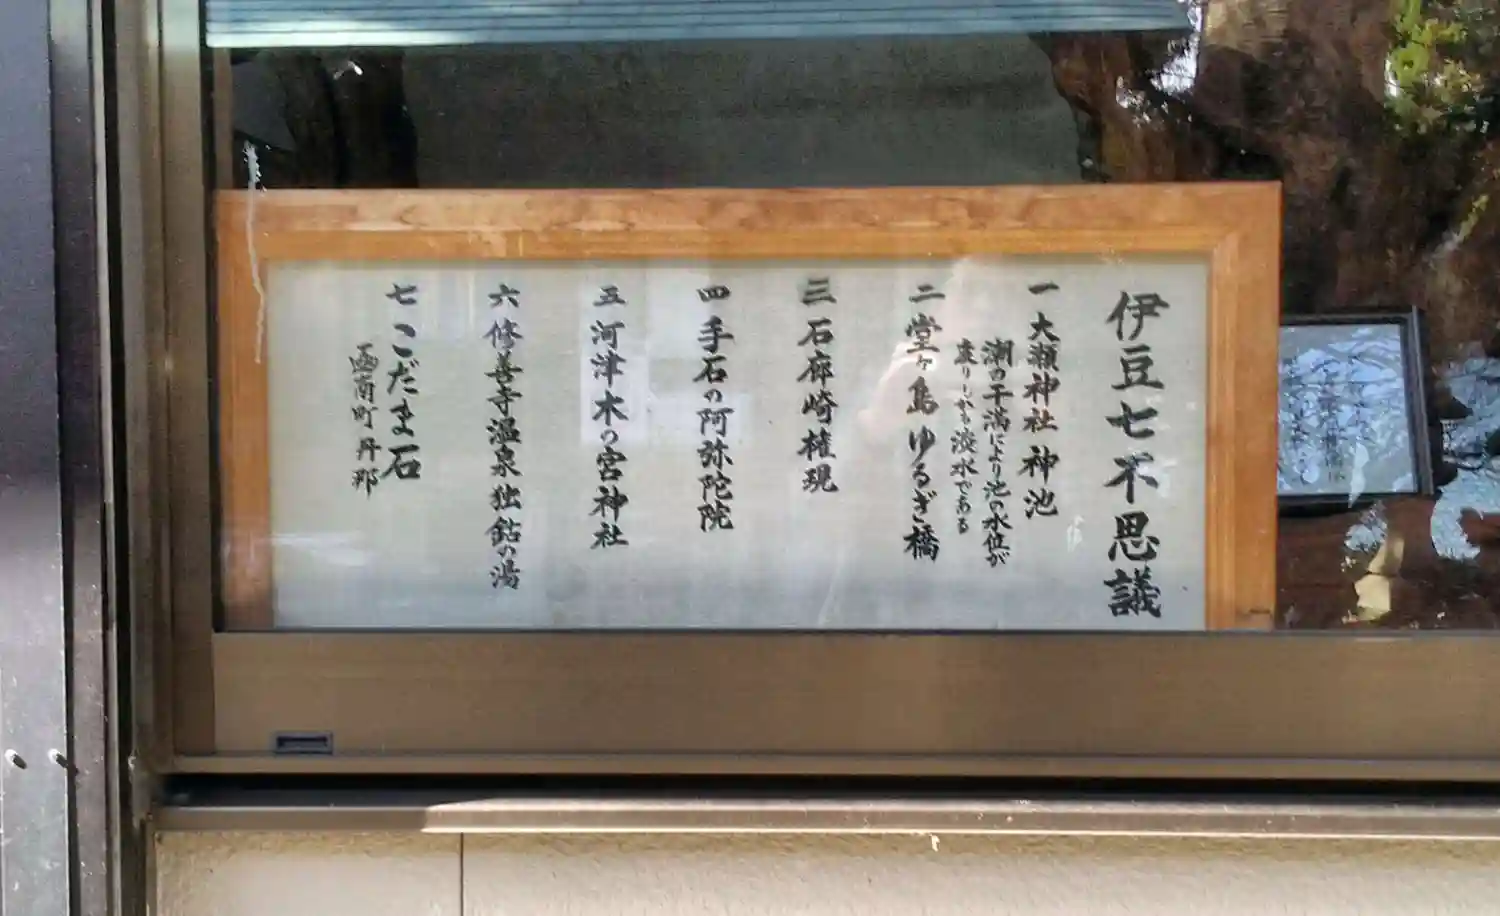 伊豆七不思議
一 大瀬神社 神池
潮の干満により池の水位が
変りしかも淡水である
二 堂ヶ島 ゆるぎ橋
三 石廊崎権現
四 手石の阿弥陀院
五 河津木の宮神社
六 修善寺温泉 独鈷の湯
七 こだま石
函南町 丹那